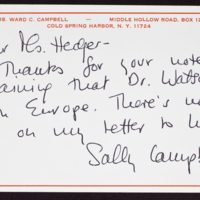 RS. WARD C. CAMPBELL — MIDDLE HOLLOW ROAD, BOX 12
COLD SPRING HARBOR, N. Y. 11724
r Ms. Hedger-
Thanks for your note
aining that Dr. Wats
n Europe. There's n
on my letter to h
Sally Camp